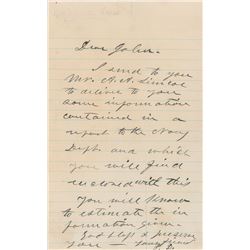 Dear John.
I send to you
Mr. A. A. Simcoe
to deliver to you
some information
contained in a
report to the Navy
Dept. and which
you will find
inclosed with this
you will know
to estimate the in
formation given.
God bless & preserve
you —